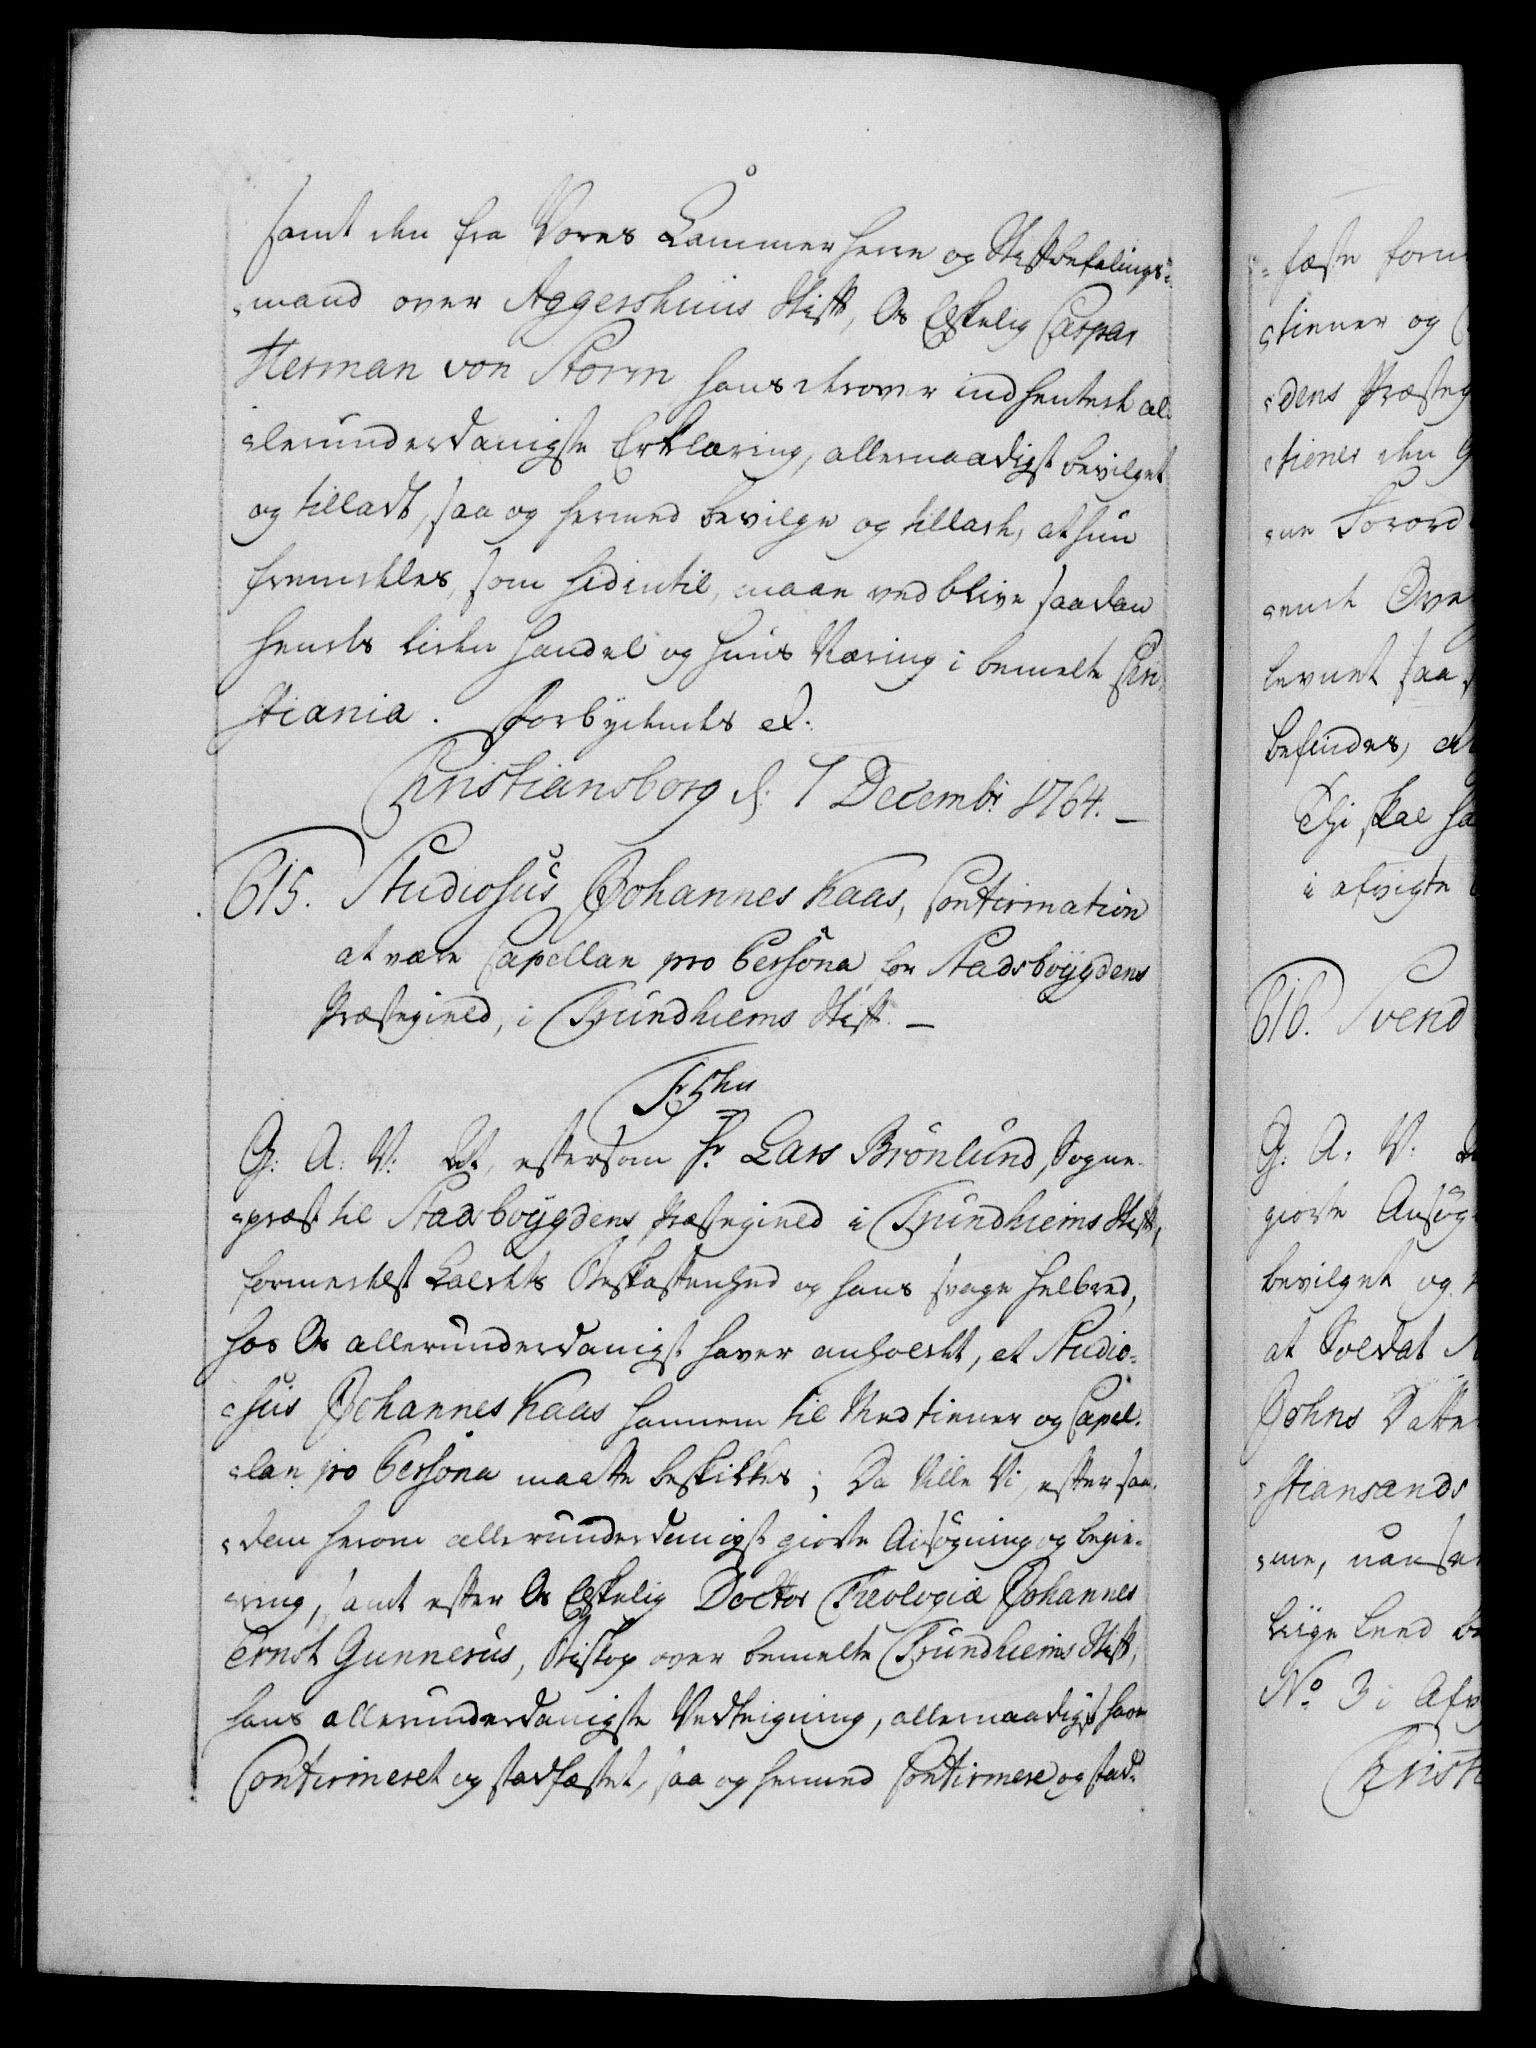 samt den fra Vores Cammer Herre og Stiftbefalings-
-mand over Aggershuus Stift, Os Elskelig Caspar
Herman von Storm hans derover indhentede al-
-lerunderdanigste Erklæring, allernaadigst bevilget
og tilladt, saa og hermed bevilge og tillade, at hun
fremdeles, som hidintil, maae vedblive saadan
hendes liden Handel og Huus Næring i bemelte Chri-
stiania. Forbydendes et.
Christiansborg d: 7 Decembr: 1764. —
615. Studiosus Johannes Kaas, Confirmation
at være Capellan pro Persona for Stadsboygdens
Præstegield, i Trundhiems Stift. —
Fr: 5ten
G: A: V: At, eftersom Hr. Lars Brönlund, Sogne-
-præst til Stadsboygdens Præstegield i Trundhiems Stift,
formedelst Kaldets Beskaffenhed og hans svage Helbred,
hos Os allerunderdanigst haver anholdt, at Studio-
-sus Johannes Kaas hannem til Medtiener og Capel-
-lan pro Persona maatte beskikkes; Da Ville Vi, efter saa-
-dan herom allerunderdanigst giorte Ansøgning og begie-
-ring, samt efter Os Elskelig Doctor Theologiæ Johannes
Ernst Gunnerus, Biskop over bemelte Trundhiems Stift,
hans allerunderdanigste Vedteigning, allernaadigst have
Confirmeret og stadfæstet, saa og hermed Confirmere og stad-
-fæste form
-tiener og
-dens Præsteg
-tiener den
-ne Forord
-ende Ove
levnet saa
befindes, at
Thi skal ha
i afvigte
616. Svend
G: A: V:
giorte Ansøg
bevilget og
at Soldat
Johns Datte
-stiansands
-me, uanse
lige Leed be
No. 3 i Afv
Christ